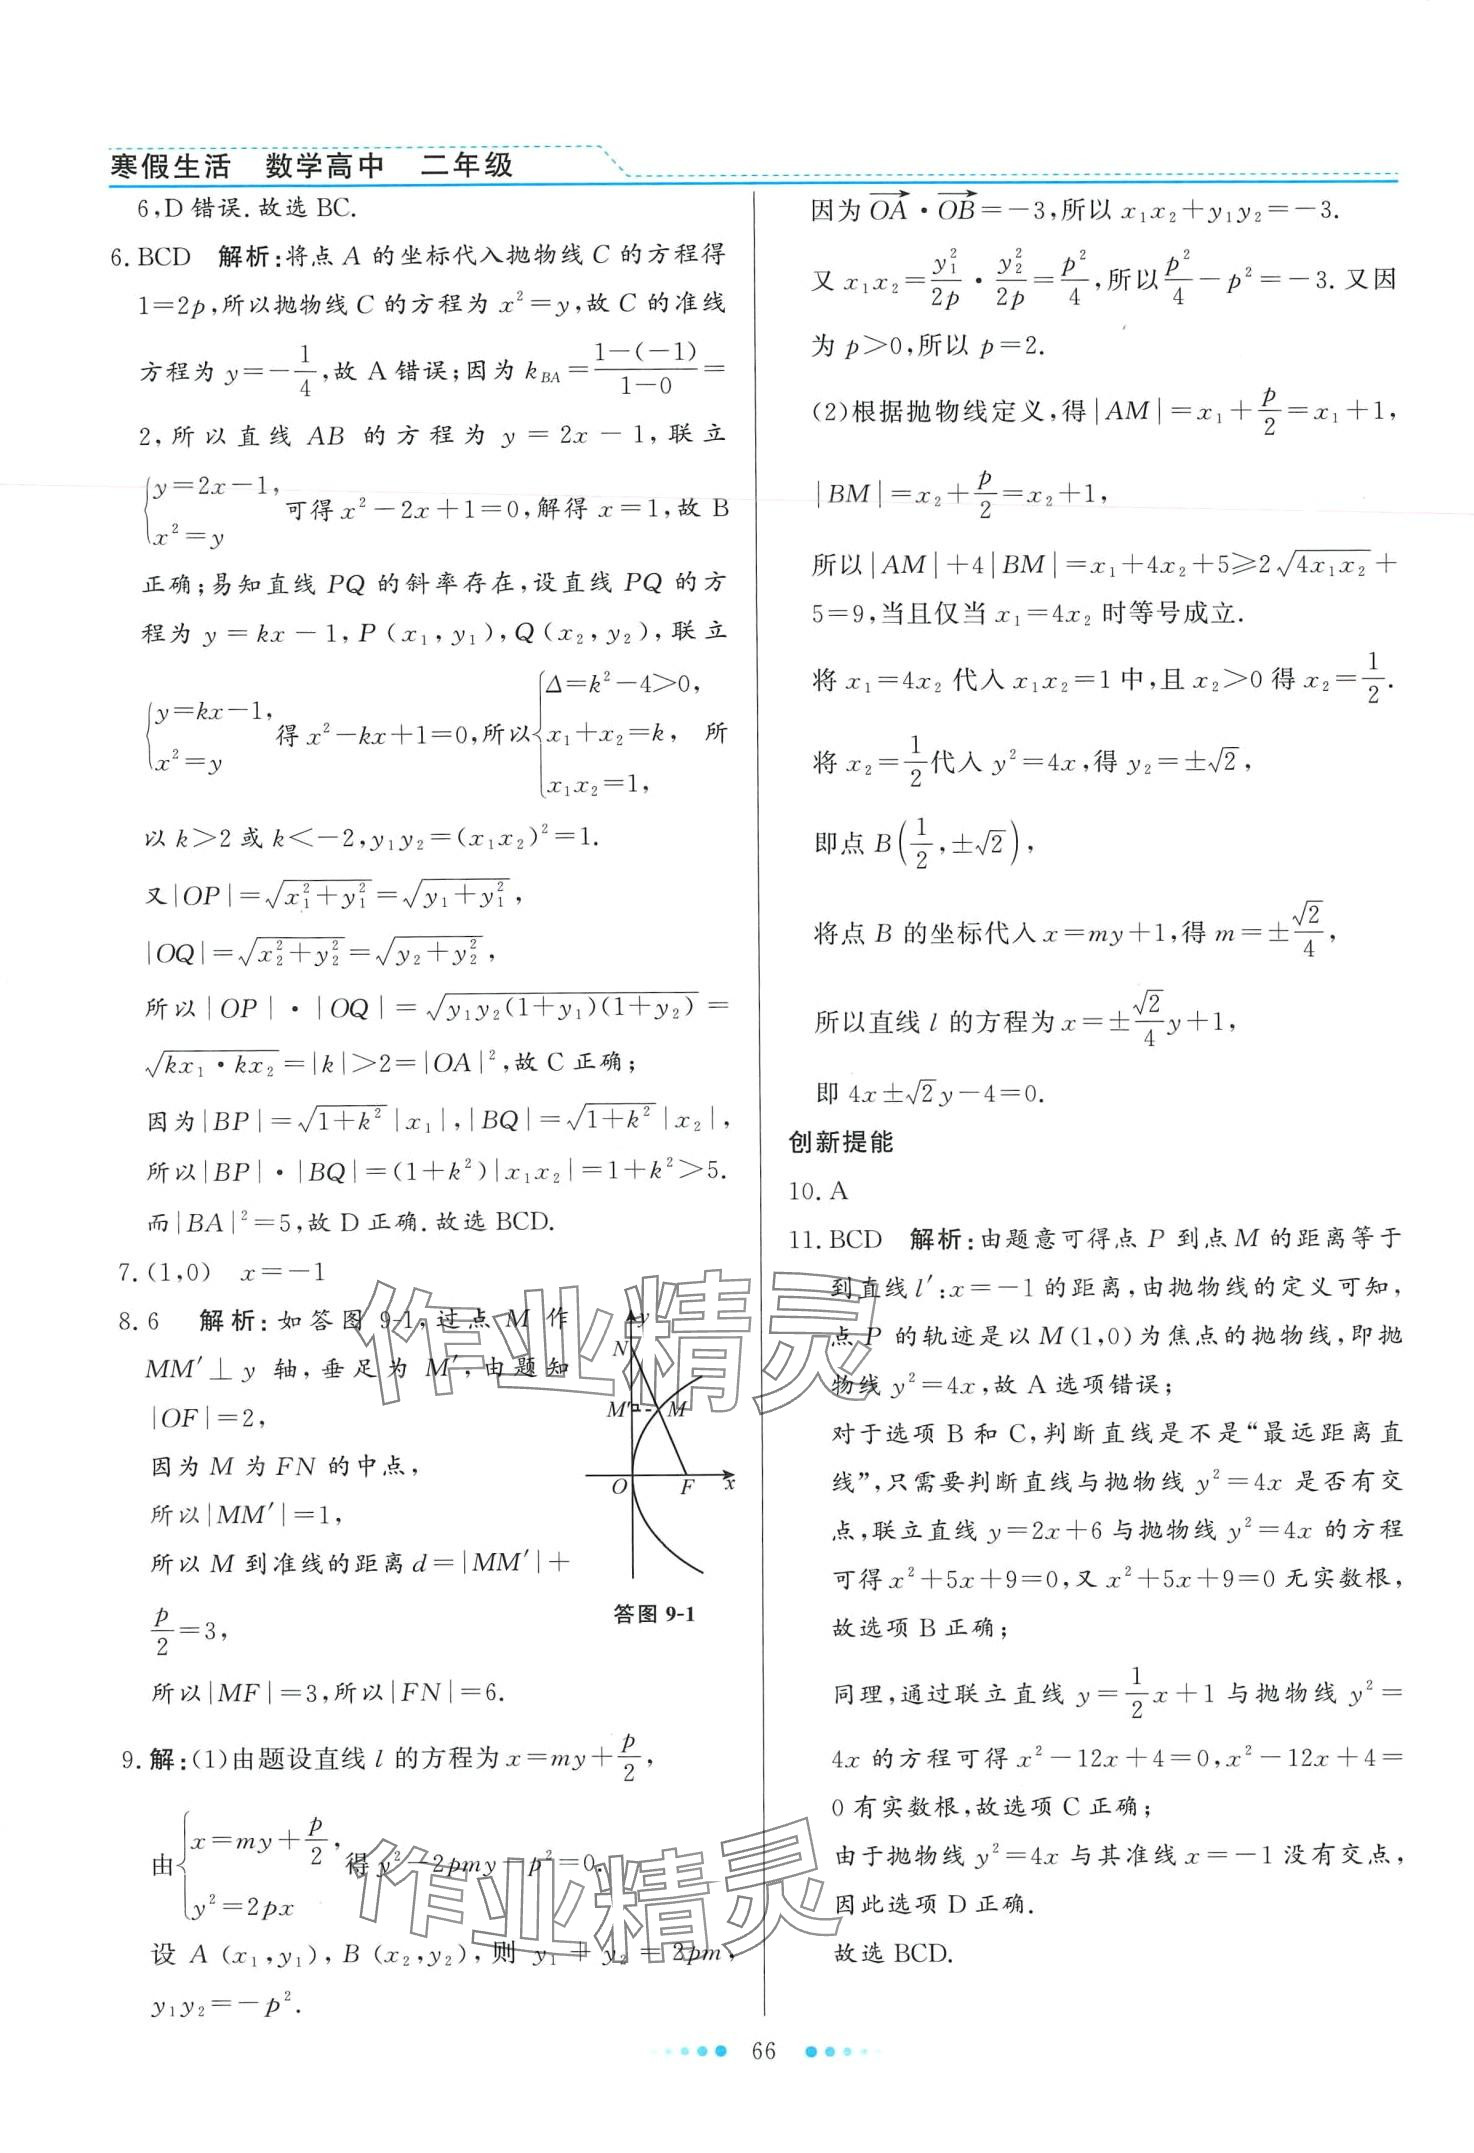 寒假生活　数学高中　二年级
6,D 错误.故选 BC.
6. BCD　解析:将点 A 的坐标代入抛物线 C 的方程得
1=2p,所以抛物线 C 的方程为 x²=y,故 C 的准线
方程为 y=-1/4,故 A 错误;因为 k_{BA}=\frac{1-(-1)}{1-0}=
2,所以直线 AB 的方程为 y=2x-1,联立
{y=2x-1, x²=y 可得 x²-2x+1=0,解得 x=1,故 B
正确;易知直线 PQ 的斜率存在,设直线 PQ 的方
程为 y=kx-1,P(x₁,y₁),Q(x₂,y₂),联立
{y=kx-1, x²=y 得 x²-kx+1=0,所以{Δ=k²-4>0, x₁+x₂=k, x₁x₂=1, 所
以 k>2 或 k<-2,y₁y₂=(x₁x₂)²=1.
又|OP|=√(x₁²+y₁²)=√(y₁+y₁²),
|OQ|=√(x₂²+y₂²)=√(y₂+y₂²),
所以|OP|·|OQ|=√(y₁y₂(1+y₁)(1+y₂))=
√(kx₁·kx₂)=|k|>2=|OA|²,故 C 正确;
因为|BP|=√(1+k²)|x₁|,|BQ|=√(1+k²)|x₂|,
所以|BP|·|BQ|=(1+k²)|x₁x₂|=1+k²>5.
而|BA|²=5,故 D 正确.故选 BCD.
7. (1,0)　x=-1
8. 6　解析:如答图 9-1,过点 M 作
MM′⊥y 轴,垂足为 M′,由题知
|OF|=2,
因为 M 为 FN 的中点,
所以|MM′|=1,
所以 M 到准线的距离 d=|MM′|+
p/2=3,
所以|MF|=3,所以|FN|=6.
y
N
M′
M
O
F
x
答图 9-1
9. 解:(1)由题设直线 l 的方程为 x=my+p/2,
由{x=my+p/2, y²=2px 得 y²-2pmy-p²=0.
设 A(x₁,y₁),B(x₂,y₂),则 y₁+y₂=2pm,
y₁y₂=-p².
因为 \overrightarrow{OA}·\overrightarrow{OB}=-3,所以 x₁x₂+y₁y₂=-3.
又 x₁x₂=y₁²/2p·y₂²/2p=p²/4,所以 p²/4-p²=-3.又因
为 p>0,所以 p=2.
(2)根据抛物线定义,得|AM|=x₁+p/2=x₁+1,
|BM|=x₂+p/2=x₂+1,
所以|AM|+4|BM|=x₁+4x₂+5≥2√(4x₁x₂)+
5=9,当且仅当 x₁=4x₂ 时等号成立.
将 x₁=4x₂ 代入 x₁x₂=1 中,且 x₂>0 得 x₂=1/2.
将 x₂=1/2代入 y²=4x,得 y₂=±√2,
即点 B(1/2,±√2),
将点 B 的坐标代入 x=my+1,得 m=±√2/4,
所以直线 l 的方程为 x=±\frac{√2}{4}y+1,
即 4x±√2y-4=0.
创新提能
10. A
11. BCD　解析:由题意可得点 P 到点 M 的距离等于
到直线 l′:x=-1 的距离,由抛物线的定义可知,
点 P 的轨迹是以 M(1,0)为焦点的抛物线,即抛
物线 y²=4x,故 A 选项错误;
对于选项 B 和 C,判断直线是不是“最远距离直
线”,只需要判断直线与抛物线 y²=4x 是否有交
点,联立直线 y=2x+6 与抛物线 y²=4x 的方程
可得 x²+5x+9=0,又 x²+5x+9=0 无实数根,
故选项 B 正确;
同理,通过联立直线 y=\frac{1}{2}x+1 与抛物线 y²=
4x 的方程可得 x²-12x+4=0,x²-12x+4=
0 有实数根,故选项 C 正确;
由于抛物线 y²=4x 与其准线 x=-1 没有交点,
因此选项 D 正确.
故选 BCD.
作业精灵
作业精灵
66